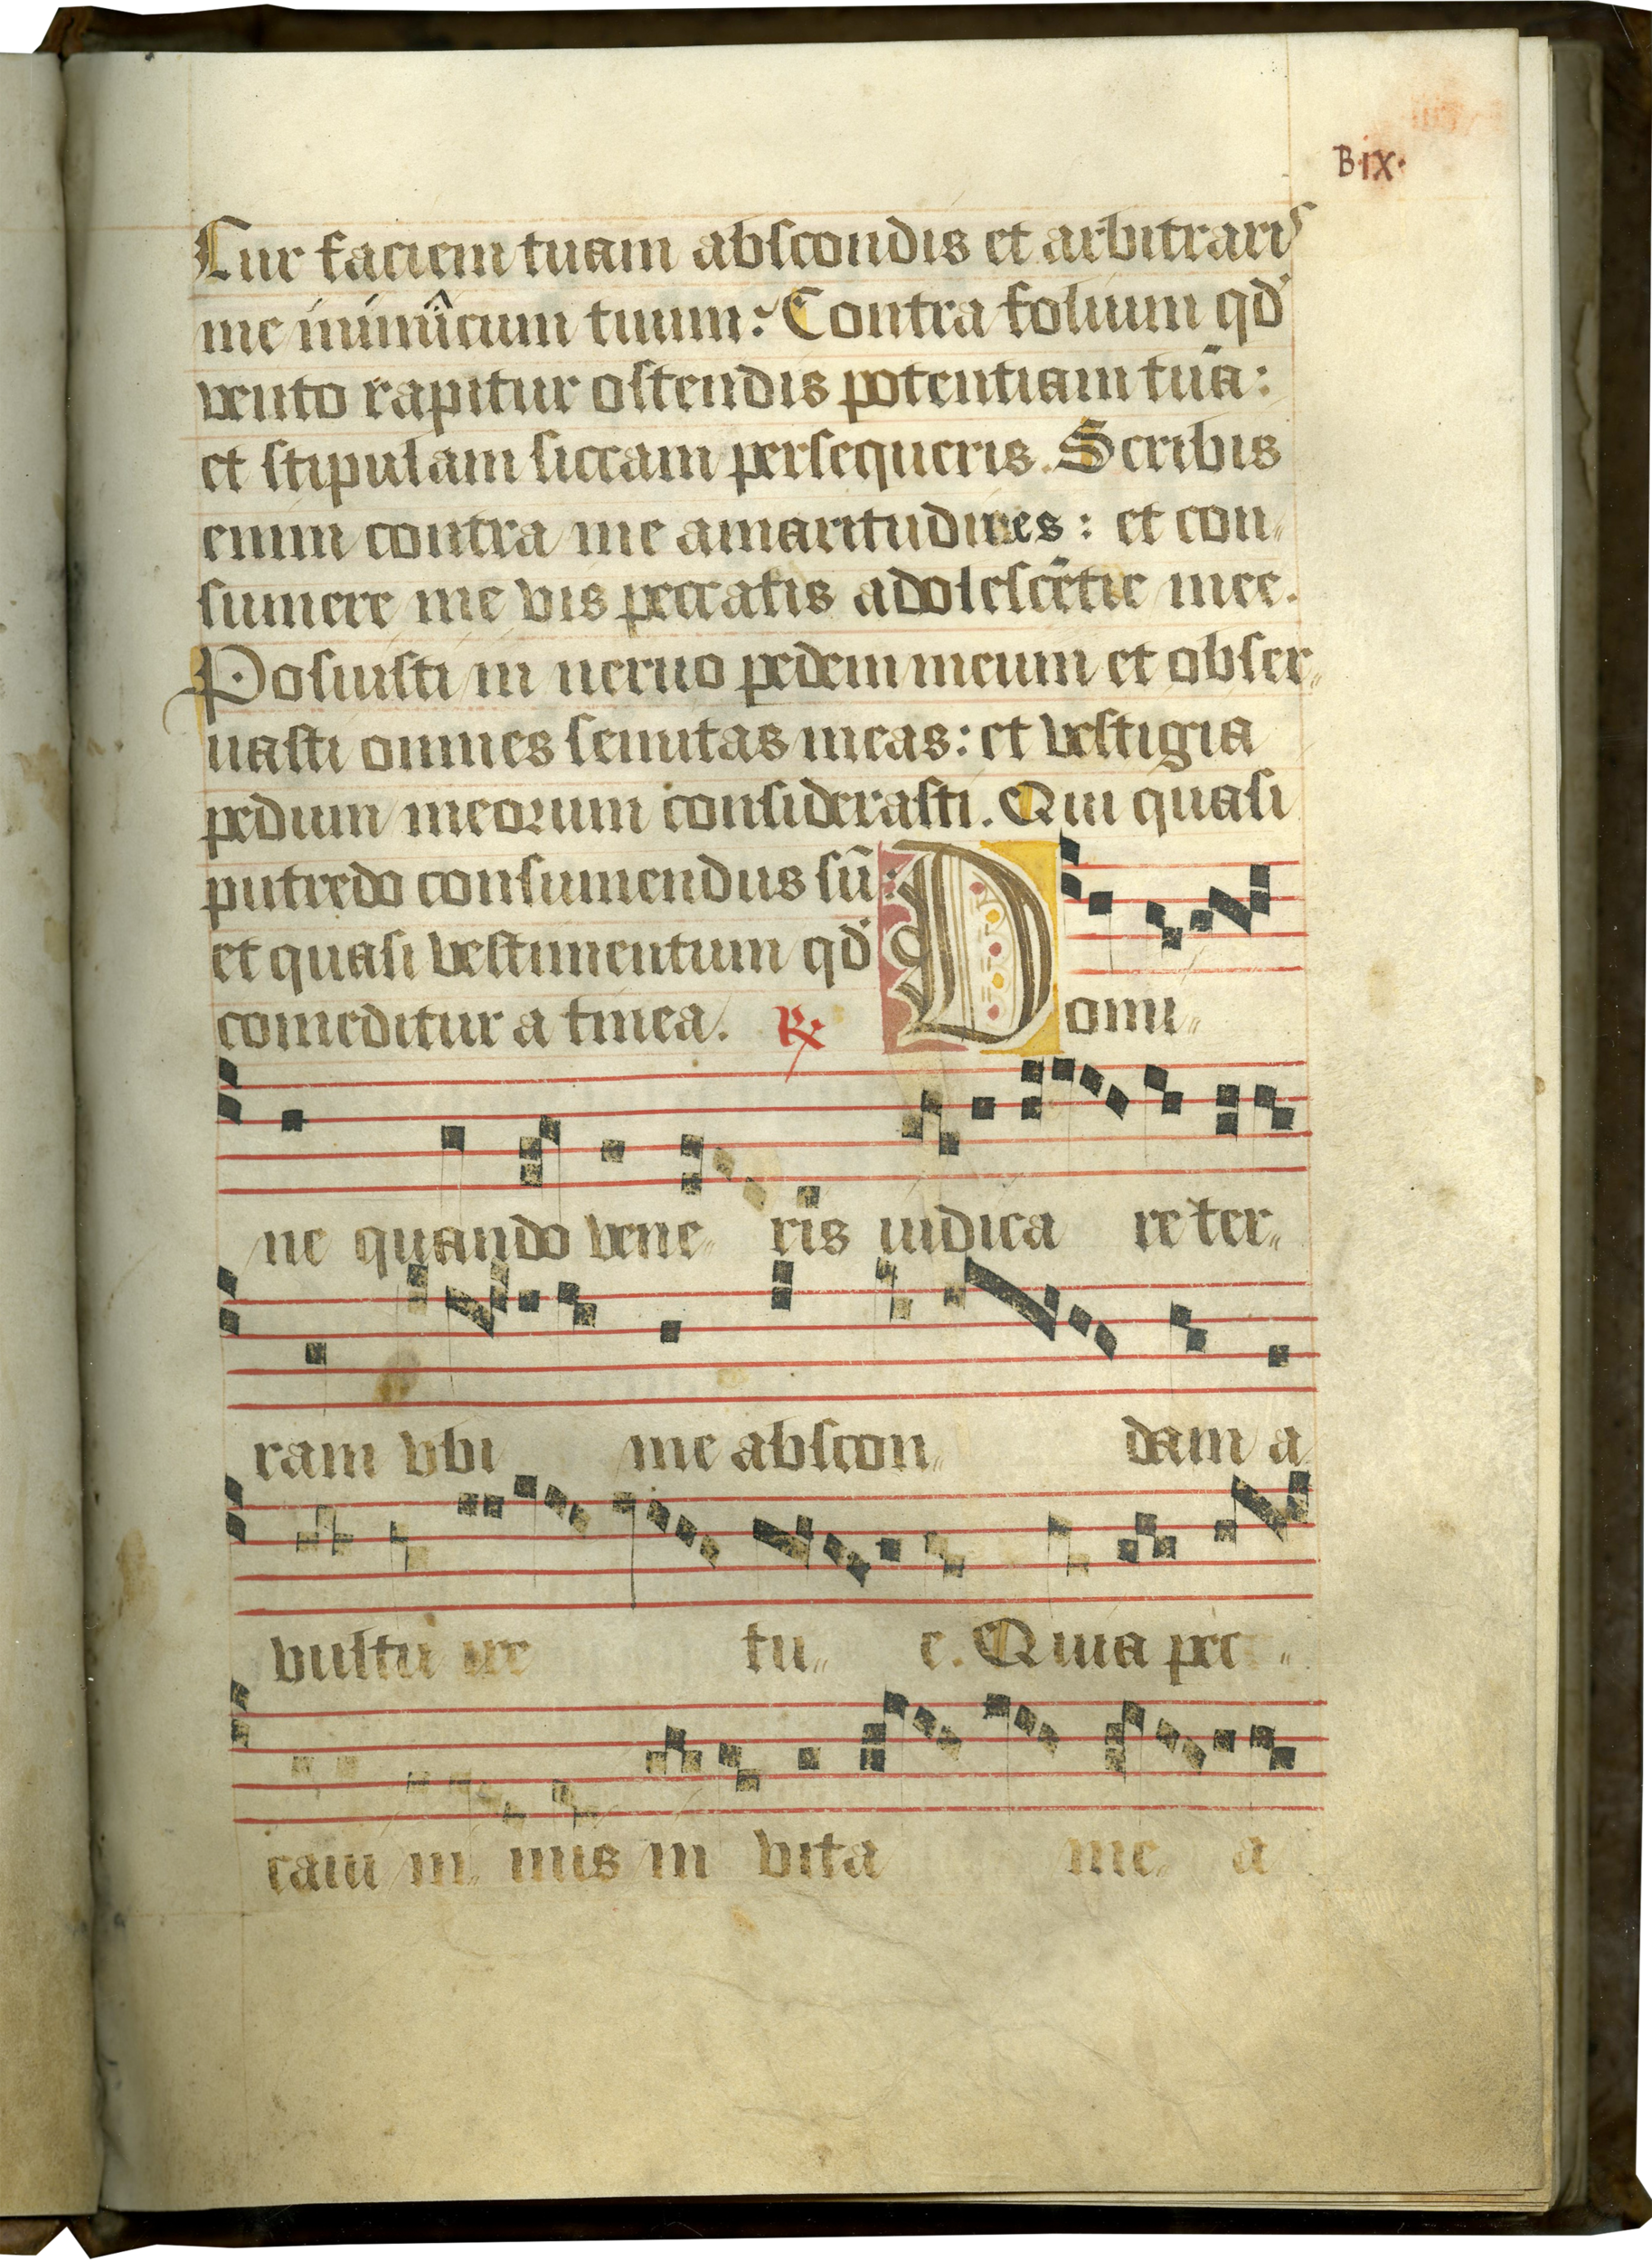 B·ix·
Cur faciem tuam abscondis et arbitraris
me inimicum tuum? Contra folium qd̓
vento rapitur ostendis potentiam tuā:
et stipulam siccam persequeris. Scribis
enim contra me amaritudines: et con„
sumere me vis peccatis adolescētie mee.
Posuisti in neruo pedem meum et obser„
uasti omnes semitas meas: et vestigia
pedum meorum considerasti. Qui quasi
putredo consumendus sū:
et quasi vestimentum qd̓
comeditur a tinea. ℟ Domi„
ne quando vene„ ris iudica re ter„
ram vbi me abscon„ dam a
vultu ire tu„ e. Quia pec„
caui ni„ mis in vita me„ a